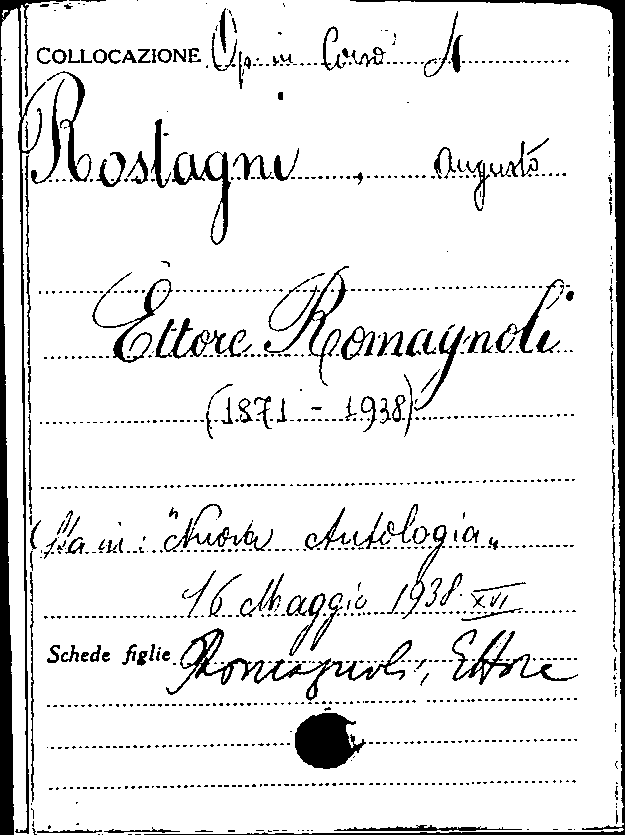 COLLOCAZIONE Op. in Corso A
Rostagni, Augusto
Ettore Romagnoli
(1871 - 1938)
Sta in: "Nuova Antologia„
16 Maggio 1938 XVI
Schede figlie Romagnoli, Ettore